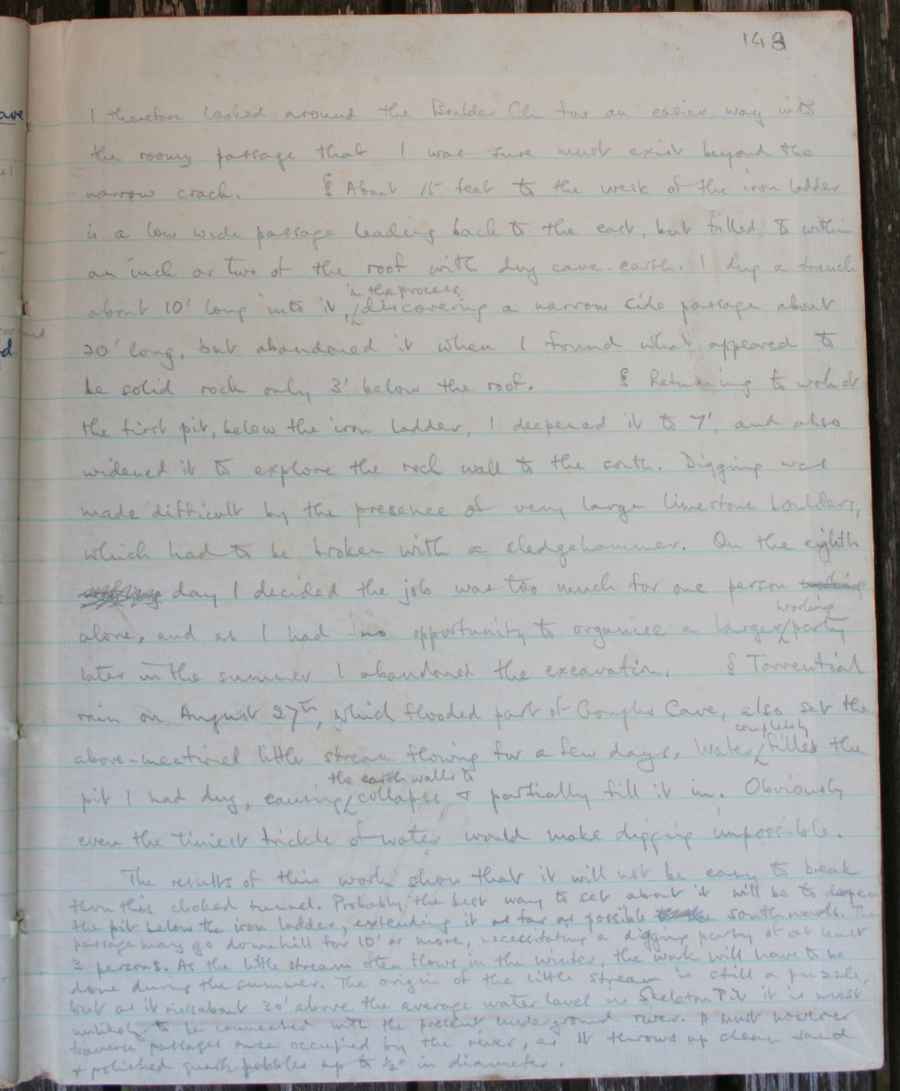 143
I therefore looked around the Boulder Ch. for an easier way into
the roomy passage that I was sure must exist beyond the
narrow crack. § About 15 feet to the west of the iron ladder
is a low wide passage leading back to the east, but filled to within
an inch or two of the roof with dry cave-earth. I dug a trench
about 10' long into it, in the process discovering a narrow side passage about
20' long, but abandoned it when I found what appeared to
be solid rock only 3' below the roof. § Returning to work at
the first pit, below the iron ladder, I deepened it to 7', and also
widened it to explore the rock wall to the south. Digging was
made difficult by the presence of very large limestone boulders,
which had to be broken with a sledgehammer. On the eighth
day I decided the job was too much for one person working
alone, and as I had no opportunity to organise a larger working party
later in the summer I abandoned the excavation. § Torrential
rain on August 27th, which flooded part of Goughs Cave, also set the
above-mentioned little stream flowing for a few days. Water completely filled the
pit I had dug, causing the earth walls to collapse & partially fill it in. Obviously
even the tiniest trickle of water would make digging impossible.
The results of this work show that it will not be easy to break
thru this choked tunnel. Probably the best way to set about it will be to deepen
the pit below the iron ladder, extending it as far as possible southwards. The
passage may go downhill for 10' or more, necessitating a digging party of at least
3 persons. As the little stream often flows in the winter, the work will have to be
done during the summer. The origin of the little stream is still a puzzle,
but as it rises about 20' above the average water level in Skeleton Pit it is most
unlikely to be connected with the present underground river. It must however
traverse passages once occupied by the river, as it throws up clean sand
& polished quartz pebbles up to ½" in diameter.